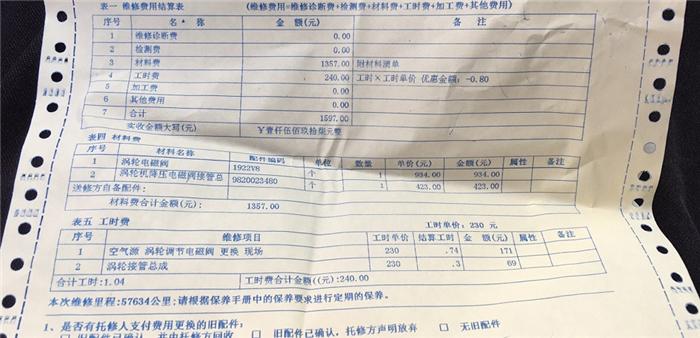 表一 维修费用结算表 (维修费用=维修诊断费+检测费+材料费+工时费+加工费+其他费用)
序号 名 * 称 金 额(元) 备 注
1 维修诊断费 0.00
2 检测费 0.00
3 材料费 1357.00 附材料清单
4 工时费 240.00 工时×工时单价 优惠金额: -0.80
5 加工费 0.00
6 其他费用 0.00
7 合计 1597.00
实收金额大写(元) Y壹仟伍佰玖拾柒元整
表四 材料费
序号 材料名称 配件编码 单位 数量 单价(元) 金额(元) 属性 备注
1 涡轮电磁阀 1922V8 个 1 934.00 934.00
2 涡轮机降压电磁阀接管总 9820023480 个 1 423.00 423.00
送修方自备配件:
材料费合计金额(元): 1357.00
表五 工时费 工时单价: 230 元
序号 维修项目 工时单价 结算工时 金 额(元) 属性 备注
1 空气源 涡轮调节电磁阀 更换 现场 230 .74 171
2 涡轮接管总成 230 .3 69
合计工时:1.04 工时费合计金额((元):240.00
本次维修里程:57634公里;请根据保养手册中的保养要求进行定期的保养。
1、是否有托修人支付费用更换的旧配件:
□ 旧配件已确认,并由托修方回收 □ 旧配件已确认,托修方声明放弃 □ 无旧配件